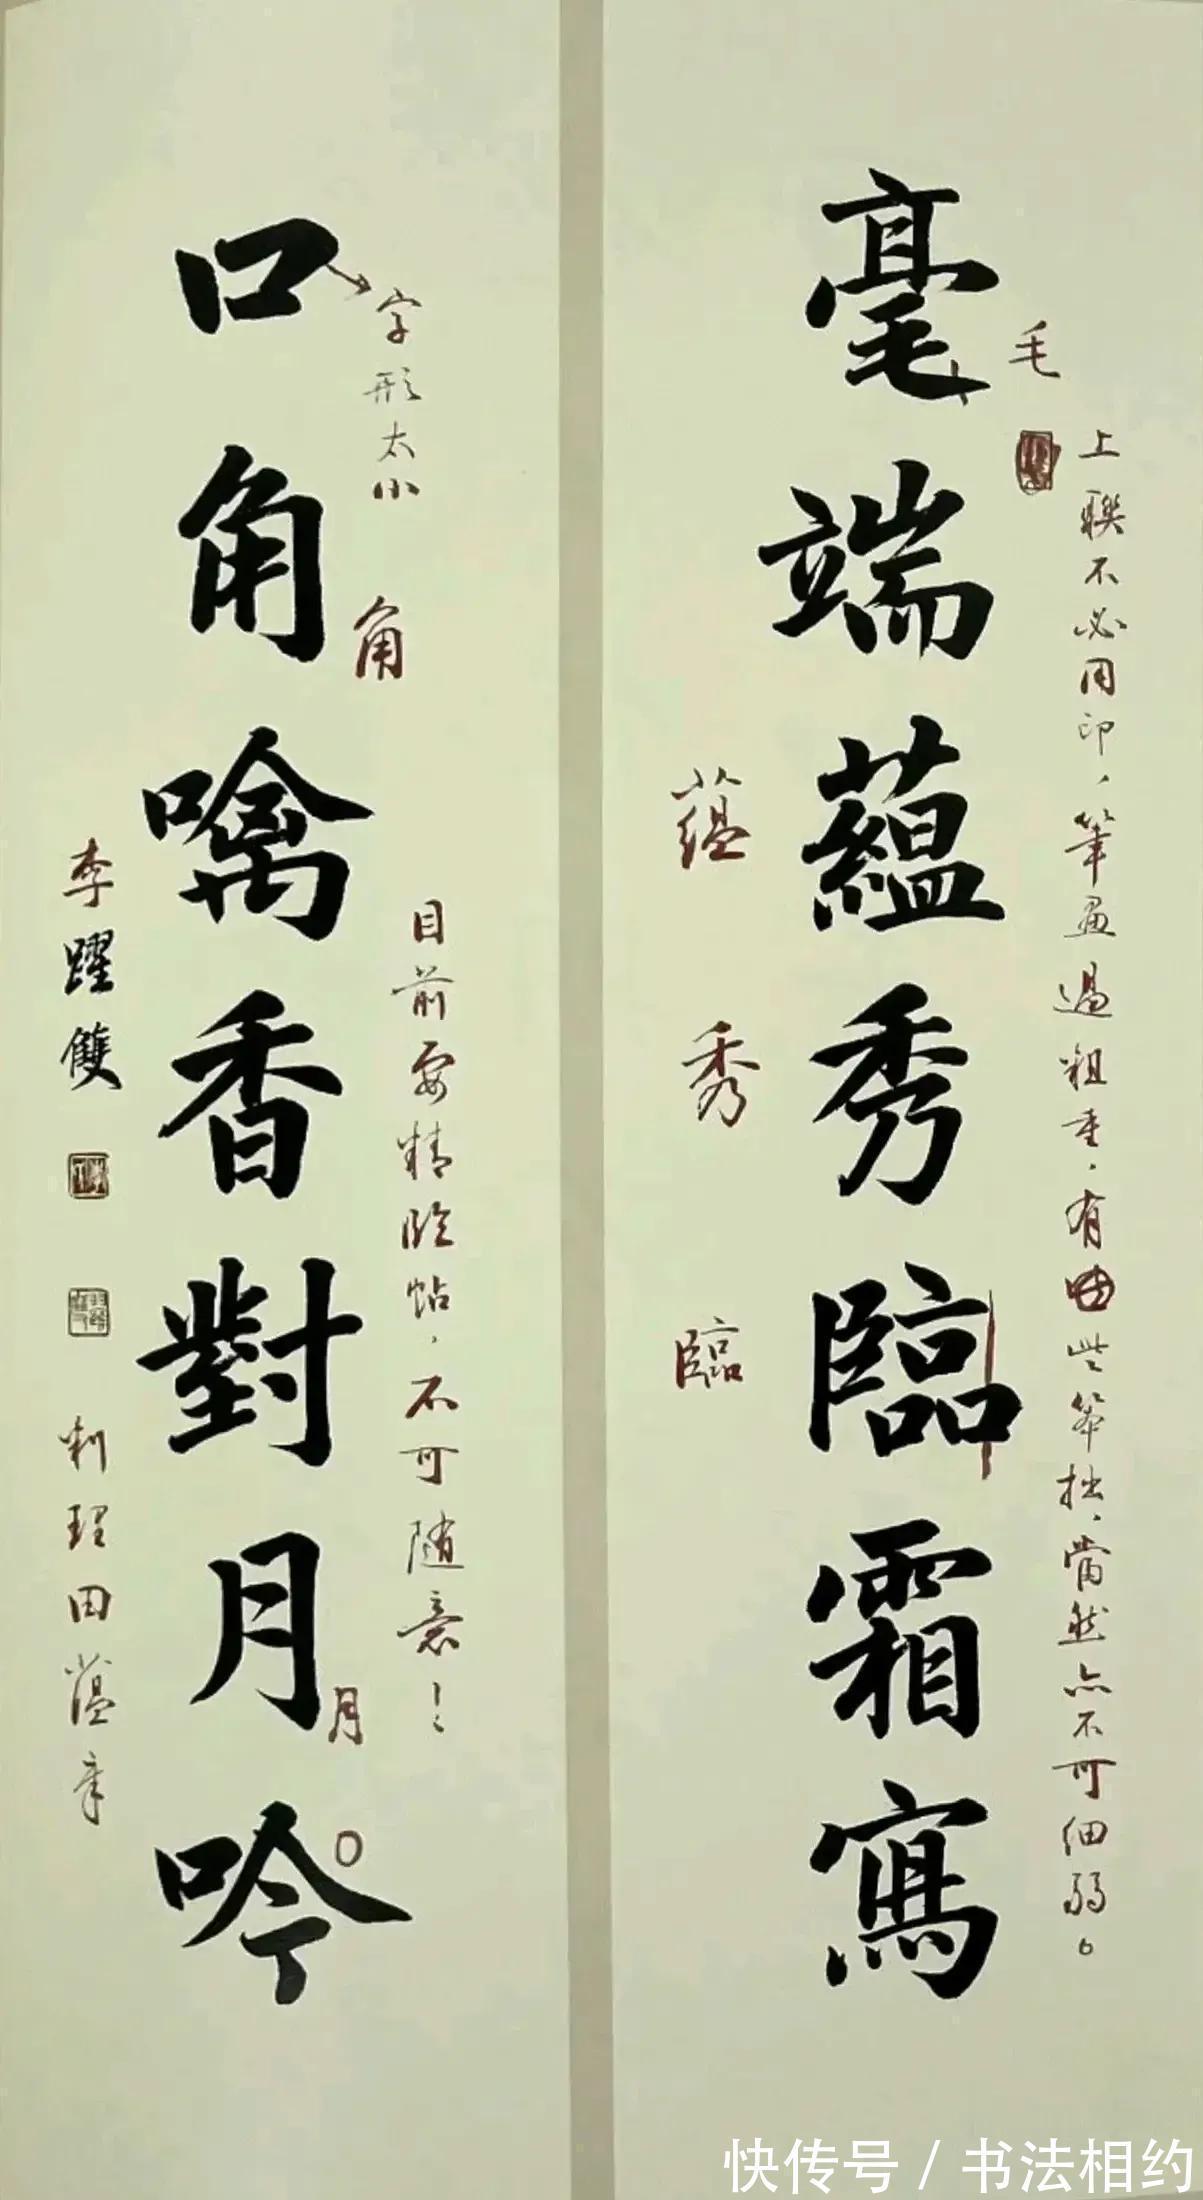 毫端蘊秀臨霜寫
毛
上聯不必用印、筆畫過粗重，有些筆拙，當然亦不可細弱。
蘊
秀
臨
口角噙香對月吟
字形太小
角
目前要精臨帖，不可隨意！
月
李躍雙
田蘊章
快传号 / 书法相约